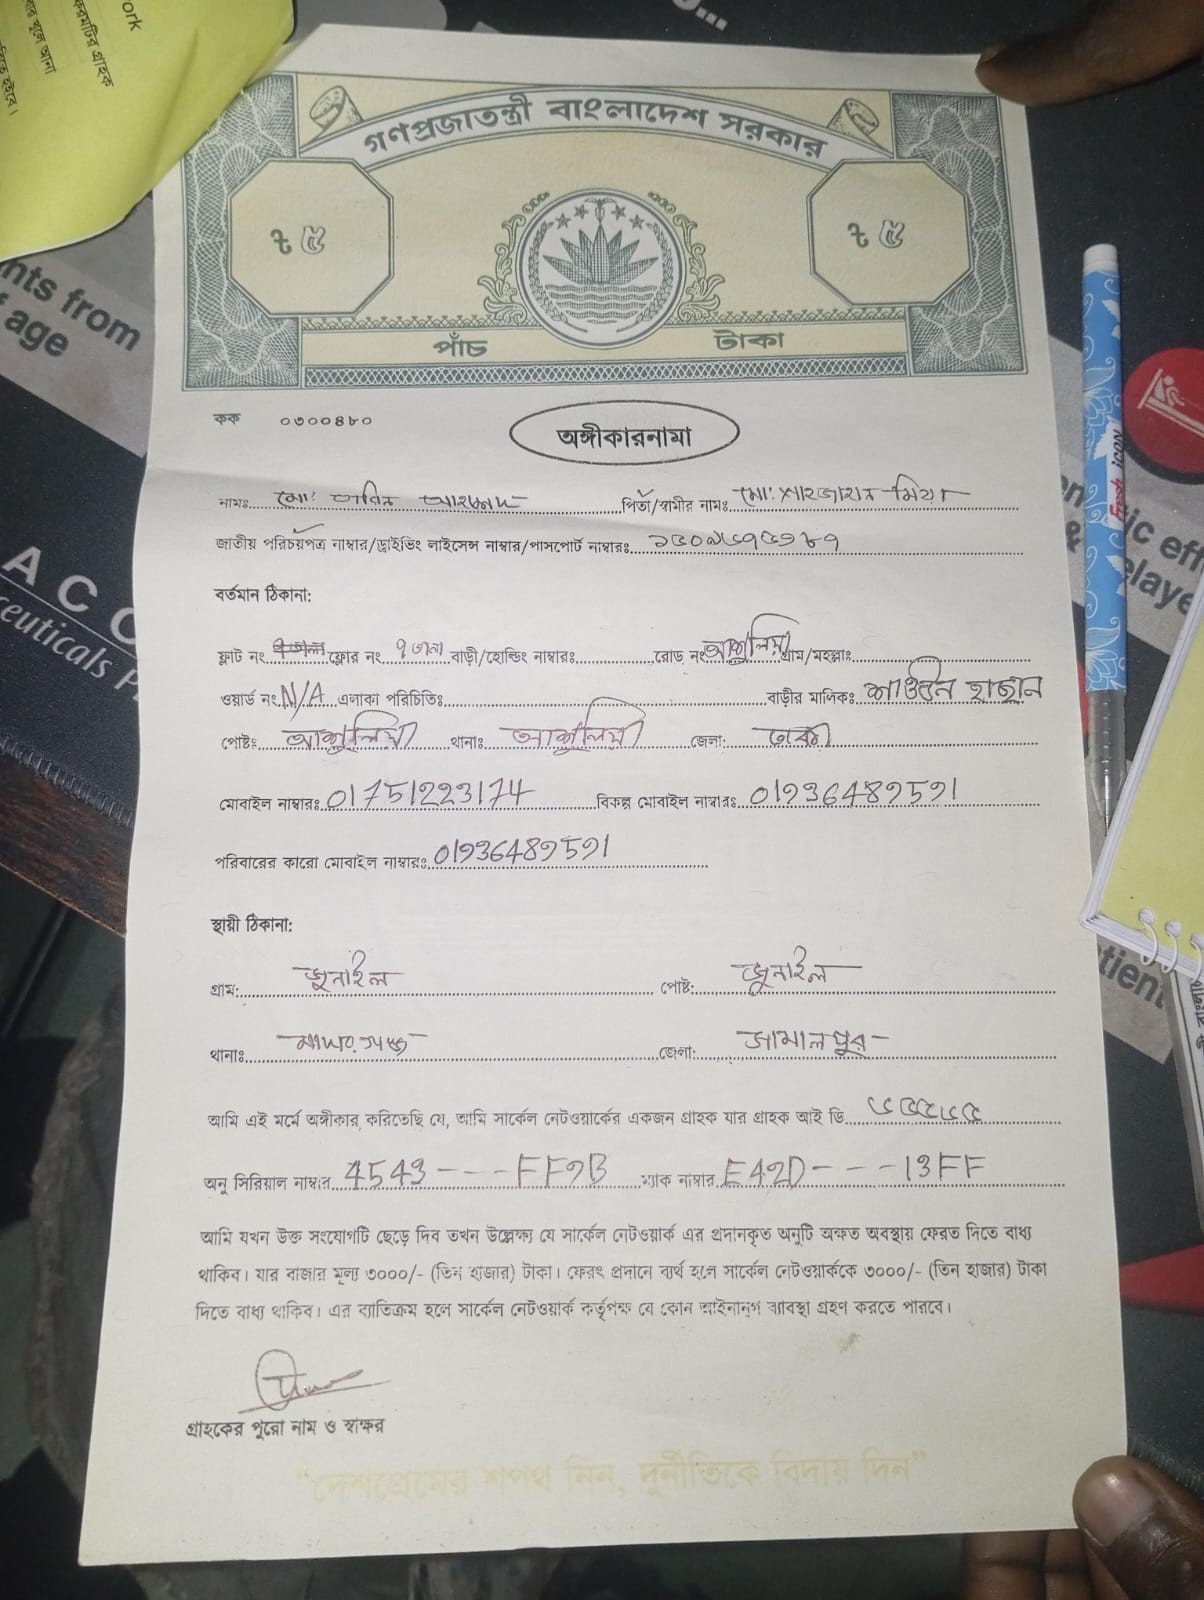 ork
করমটির গ্রাহক
গণপ্রজাতন্ত্রী বাংলাদেশ সরকার
৳ ৫
৳ ৫
পাঁচ টাকা
nts from
age
কক ০৩০০৪৮০
অঙ্গীকারনামা
নামঃ মো: আহমদ পিতা/স্বামীর নামঃ মো: শাহজাহান মিয়া
জাতীয় পরিচয়পত্র নাম্বার/ড্রাইভিং লাইসেন্স নাম্বার/পাসপোর্ট নাম্বারঃ
বর্তমান ঠিকানা:
ফ্লাট নং ফ্লোর নং ৭ তালা বাড়ী/হোল্ডিং নাম্বারঃ রোড নং আশুলিয়া গ্রাম/মহল্লাঃ
ওয়ার্ড নং N/A এলাকা পরিচিতিঃ বাড়ীর মালিকঃ হাছান
পোষ্টঃ আশুলিয়া থানাঃ আশুলিয়া জেলা: ঢাকা
মোবাইল নাম্বারঃ 01751223174 বিকল্প মোবাইল নাম্বারঃ
পরিবারের কারো মোবাইল নাম্বারঃ
স্থায়ী ঠিকানা:
গ্রাম: জুনাইল পোষ্ট: জুনাইল
থানাঃ মাদারগঞ্জ জেলা: জামালপুর
আমি এই মর্মে অঙ্গীকার করিতেছি যে, আমি সার্কেল নেটওয়ার্কের একজন গ্রাহক যার গ্রাহক আই ডি
অনু সিরিয়াল নাম্বার 4543---FF9B ম্যাক নাম্বার E42D---13FF
আমি যখন উক্ত সংযোগটি ছেড়ে দিব তখন উল্লেক্ষ্য যে সার্কেল নেটওয়ার্ক এর প্রদানকৃত অনুটি অক্ষত অবস্থায় ফেরত দিতে বাধ্য
থাকিব। যার বাজার মূল্য ৩০০০/- (তিন হাজার) টাকা। ফেরৎ প্রদানে ব্যর্থ হলে সার্কেল নেটওয়ার্ককে ৩০০০/- (তিন হাজার) টাকা
দিতে বাধ্য থাকিব। এর ব্যাতিক্রম হলে সার্কেল নেটওয়ার্ক কর্তৃপক্ষ যে কোন আইনানুগ ব্যাবস্থা গ্রহণ করতে পারবে।
গ্রাহকের পুরো নাম ও স্বাক্ষর
"দেশপ্রেমের শপথ নিন, দুর্নীতিকে বিদায় দিন"
Fresh iCON